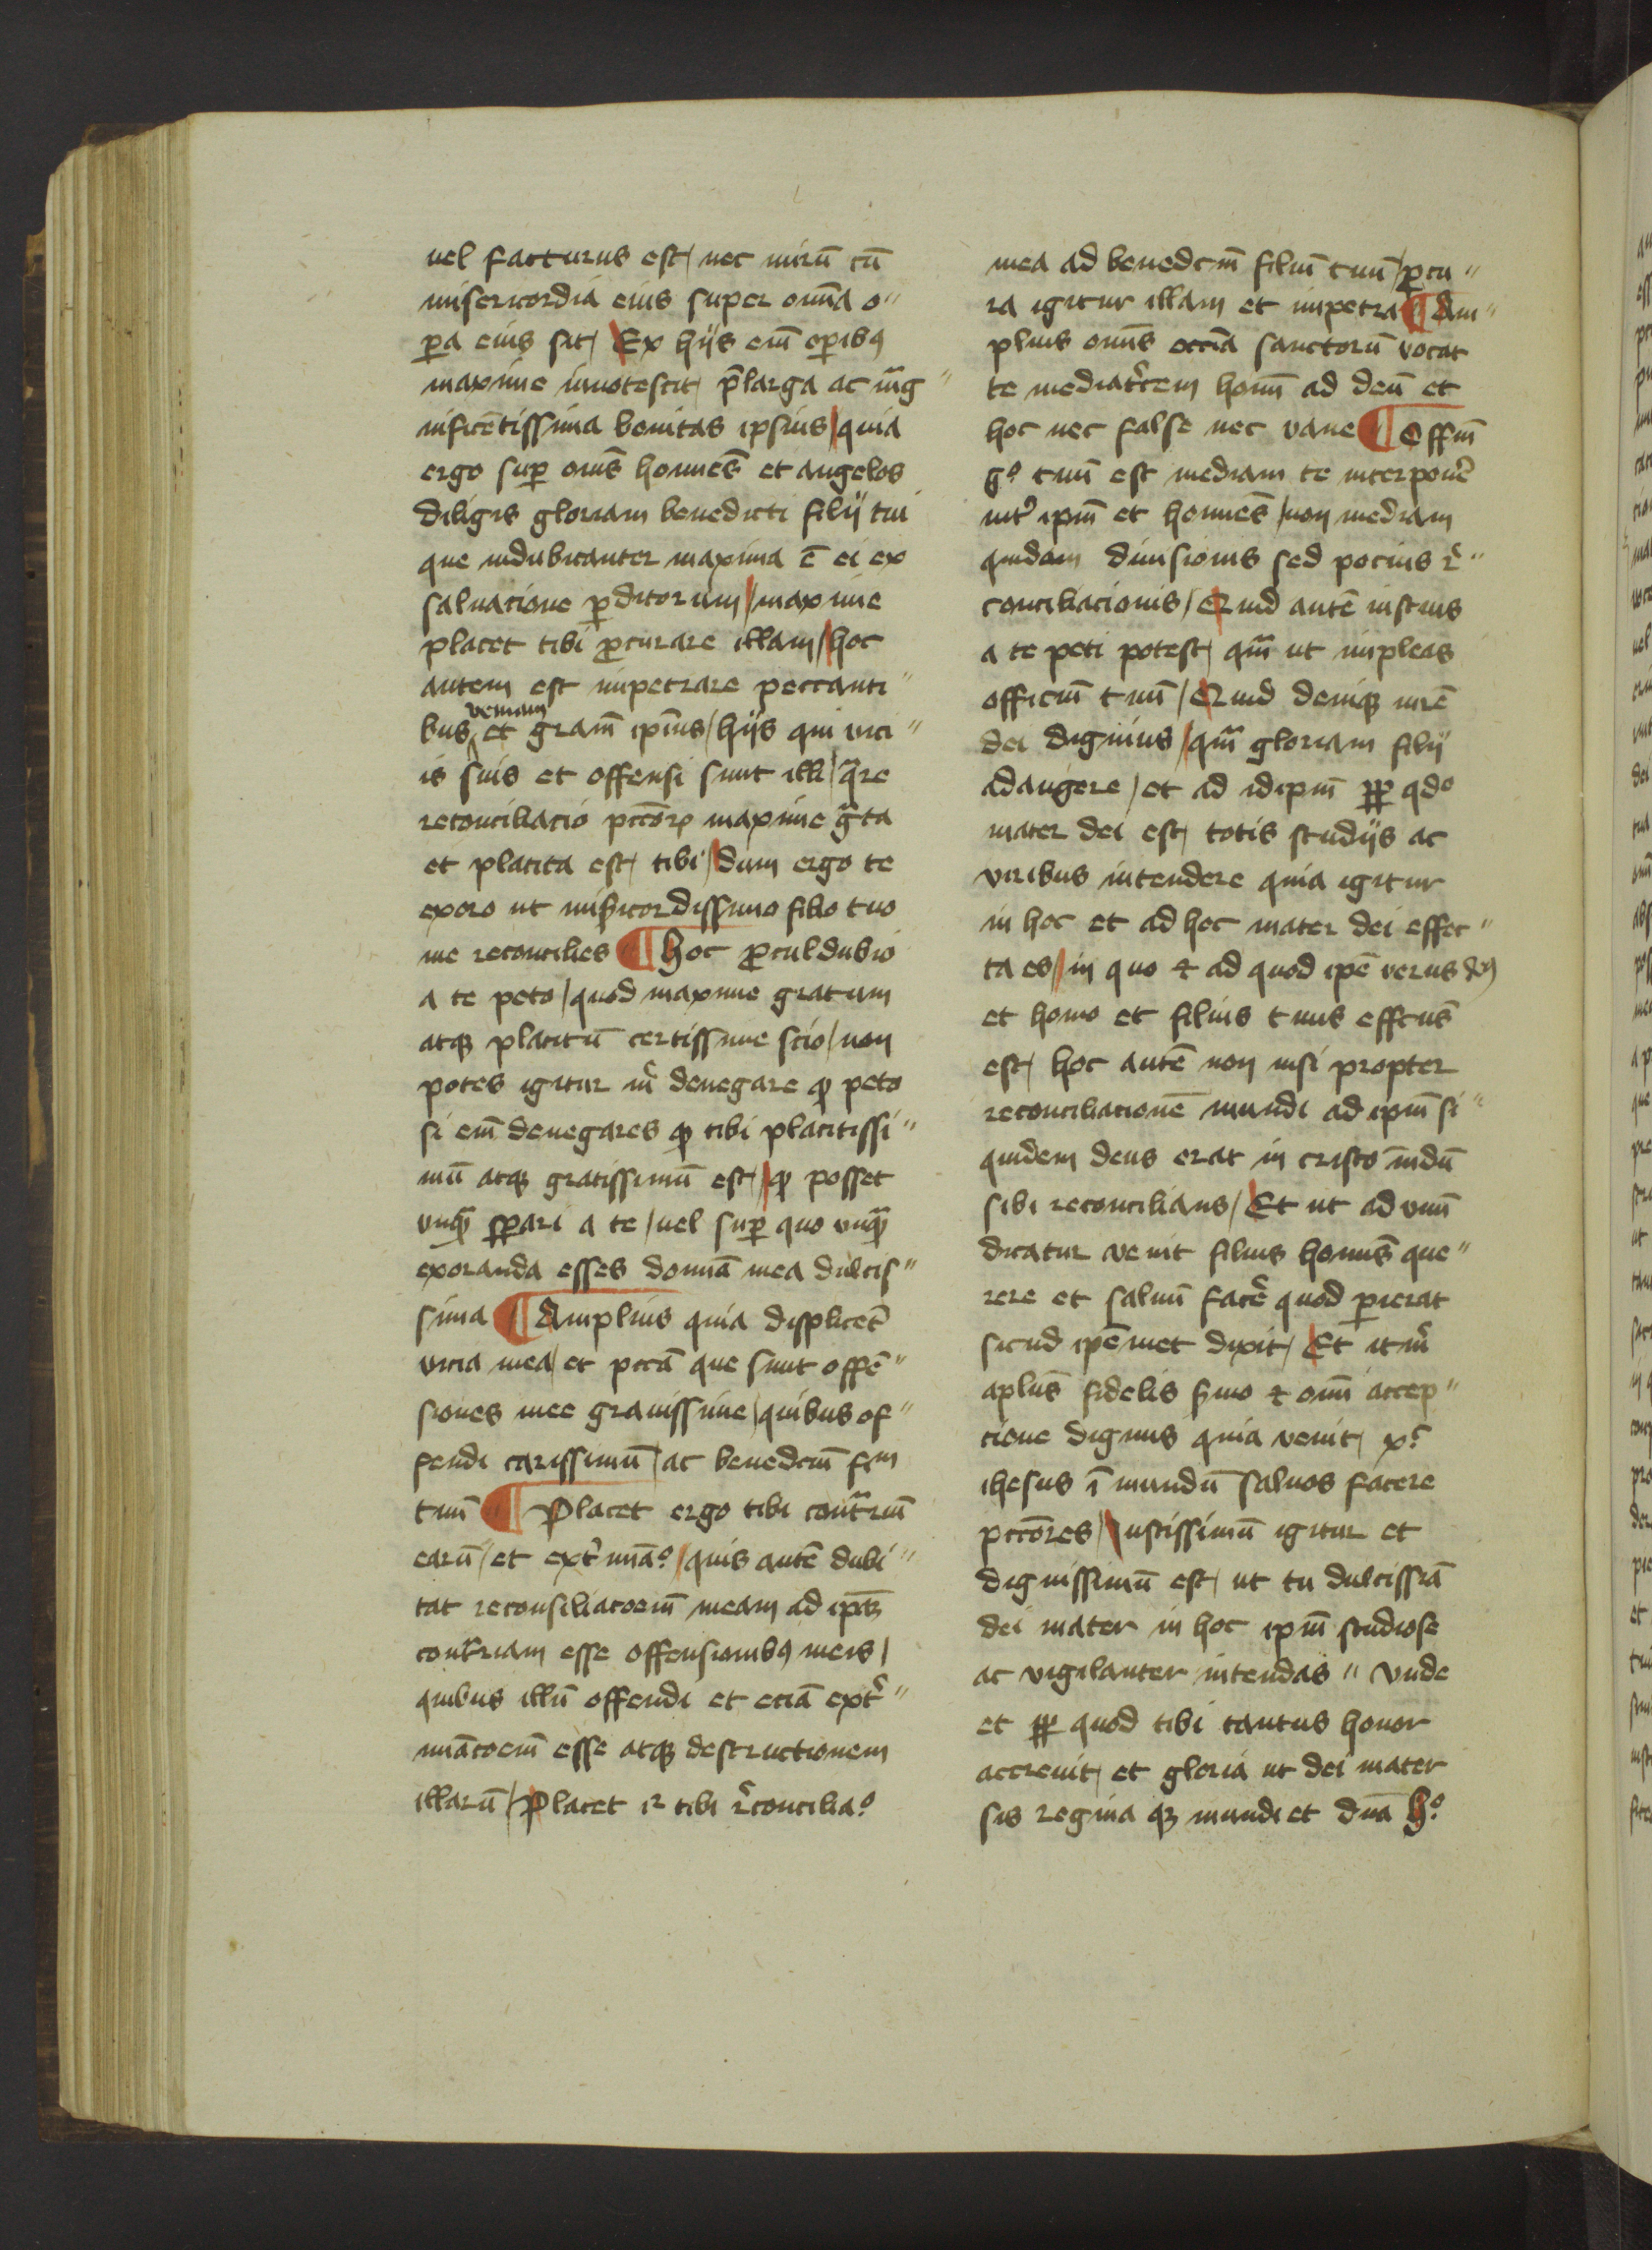 uel facturus est / nec mirū cū
misericordia eius super om̄ia o〃
ꝑa eius sit / Ex hijs em̄ oꝑibꝰ
maxime innotescit p̄larga ac mag〃
nificētissima bonitas ipsius / quia
ergo suꝑ om̄s homines̄ et angelos
diligis gloriam benedicti filij tui
que indubitanter maxima ē ei ex
saluatione ꝑditorum / maxime
placet tibi ꝓcurare illam / hoc
autem est impetrare peccanti〃
bus veniam et gram̄ ipius̄ / hijs qui vici〃
is suis et offensi sunt illi / q̄re
reconciliacio pccōꝝ maxime gͣta
et placita est / tibi / dum ergo te
exoro ut mis̄icordissimo filio tuo
me reconcilies ¶ Hoc ꝓculdubio
a te peto / quod maxime gratum
atqꝫ placitū certissime scio / non
potes igitur mͥ denegare qͦ peto
si em̄ denegares qͦ tibi placitissi〃
mū atqꝫ gratissimū est / qͦ posset
vnqͣ sꝑari a te / uel suꝑ quo vnqͣ
exoranda esses domīa mea dulcis〃
sima ¶ Amplius quia displicēt
vicia mea / et pccā que sunt offē〃
siones mee grauissime / quibus of〃
fendi carissimū / ac benedcm̄ fiᵐ
tuū ¶ Placet ergo tibi contͣriū
earū / et extͥmīaᵒ / quis autē dubi〃
tat reconsiliacoem̄ meam ad ipm̄
contͣriam esse offensionibꝰ meis /
quibus illū offendi et eciā extͥ〃
mīacoem̄ esse atqꝫ destructionem
illarū / Placet ir tibi r̄conciliaᵒ
mea ad benedcm̄ filiū tuū / ꝓcu〃
ra igitur illam et impetra ¶ Am〃
plius omīs eccīa sanctorū vocat
te mediatͥcem homī ad deū et
hoc nec false nec vane ¶ Offiū
gᵒ tuū est mediam te interponē
intͥ ipm̄ et homines̄ / non mediam
quidam diuisionis sed pocius r̄〃
conciliacionis / Quid autē iustius
a te peti potest / qm̄ ut impleas
officiū tuū / Quid deniqꝫ mrē
dei dignius / qm̄ gloriam filij
adaugere / et ad idipm̄ ꝓp qdᵒ
mater dei est / totis studijs ac
viribus intendere quia igitur
in hoc et ad hoc mater dei effec〃
ta es / in quo ⁊ ad quod ipē verus dꝰ
et homo et filius tuus effctus̄
est / hoc autē non nisi propter
reconciliationē mundi ad ipm̄ si〃
quidem deus erat in cristo m̄dū
sibi reconcilians / Et ut ad vnū
dicatur venit filius homīs que〃
rere et saluū facē quod ꝑierat
sicud ipēmet dixit / Et itmͥ
aplus̄ fidelis s̄mo ⁊ om̄i accep〃
cione dignus quia venit xᵒ
ihesus ī mundū saluos facere
pccōres / Iustissimū igitur et
dignissimū est / ut tu dulcissīa
dei mater in hoc ipm̄ studiose
ac vigilanter intendas 〃 Vnde
et ꝓp quod tibi tantus honor
accreuit / et gloria ut dei mater
sis regina qꝫ mundi et dn̄a hᵒ